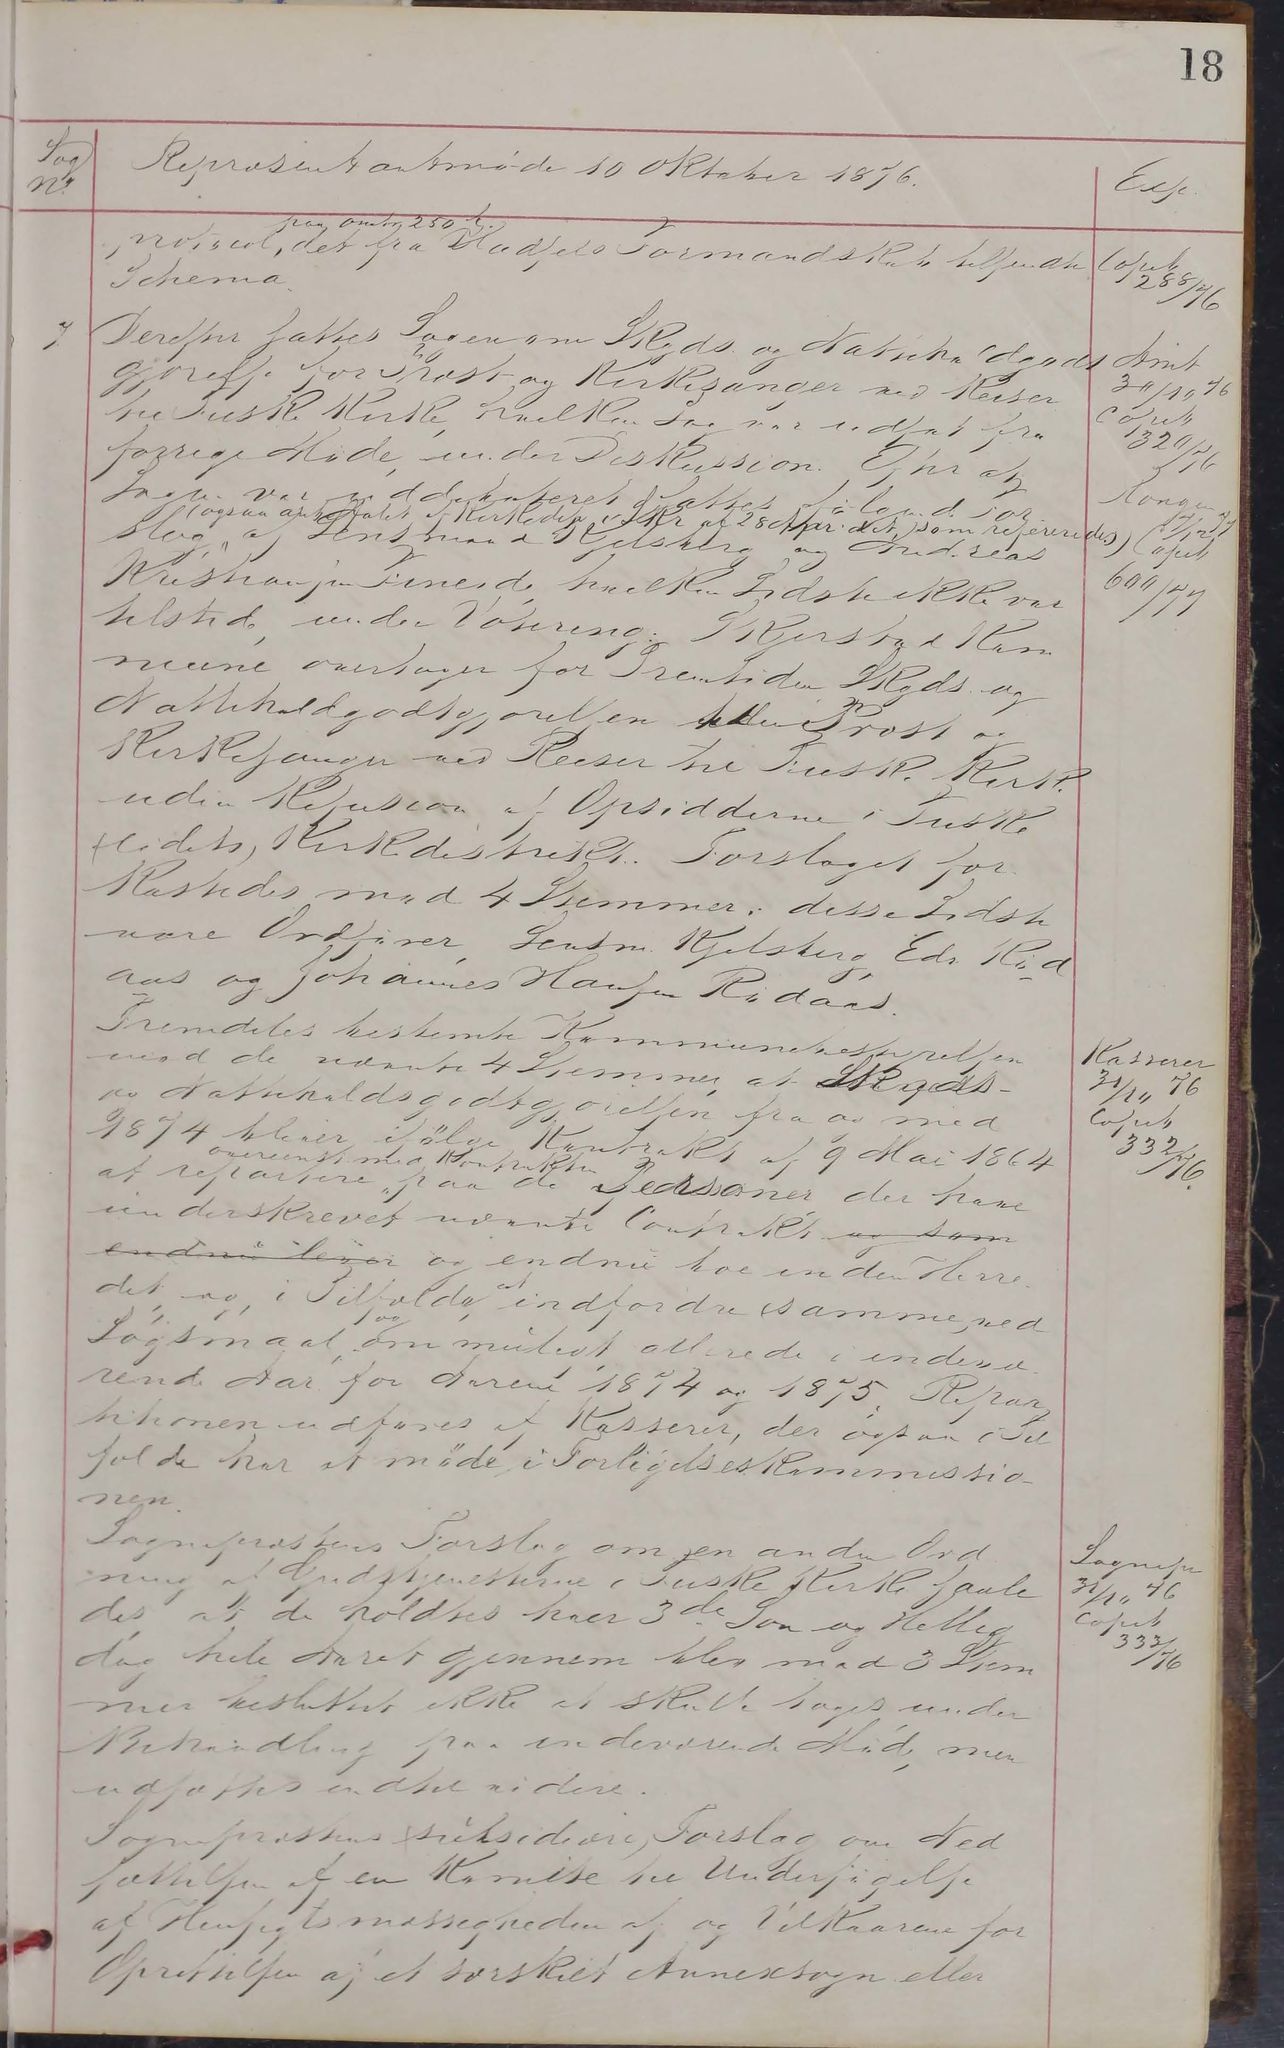 18
Sag
No.
Repræsentantmøde 10 Oktober 1876.
Exp.
paa omtr. 250 
protocol, det fra Hadsels Formandskab tilsendte
Schema.
Copieb
288/76
7. Derefter sattes Sagen om Skyds- og Natteholdgodt
gjørelse for Præst og Kirkesanger ved Reiser
til Fuske Kirke, hvilken Sag var udsat fra
forrige Møde, under Diskussion. Efter at
Sagen var uddebateret sattes følgende For
(ogsaa anbefalet af Kirkedep. i Skr. af 28 Mar. d. A. som refereredes)
slag, af Lensmand Kjelsberg og Andreas
Kristiansen Fineide, hvilken Sidste ikke var
tilstede, under Votering: Skjerstad Kom
mune overtager for Fremtiden Skyds- og
Natteholdgodtgjørelsen Præst og
Kirkesanger ved Reiser til Fuske Kirke
uden Refusion af Opsidderne i Fuske
(eidets) Kirkedistrikt. Forslaget for
kastedes mod 4 Stemmer; disse Sidste
vare Ordfører, Lensm. Kjelsberg, Edv. Röd
aas og Johannes Hansen Rödaas.
Amt
30/10 76
Copieb
320/76
Copieb
600/77
Fremdeles bestemte Kommunebestyrelsen
mod de nævnte 4 Stemmer, at Skyds-
og Natteholdsgodtgjørelsen fra og med
1874 bliver ifølge Kontrakt af 9 Mai 1864
overenst. med Kontrakten
at repartere paa de Personer der have
underskrevet nævnte Contrakt og som
endnu lever og endnu boe inden Herre
det, og, i Tilfælde, at indfordre samme ved
Søgsmaal, og om muligt allerede i indevæ
rende Aar for Aarene 1874 og 1875. Repar
titionen udføres af Kasserer, der ogsaa i Til
fælde har at møde i Forligelseskommissio
nen.
Kasserer
31/10 76
Copieb
332/76.
Sognepræstens Forslag om en anden Ord
ning af Gudstjenesterne i Fuske Kirke saale
des, at de holdtes hver 3de Søn og Hellig
dag hele Aaret gjennem blev mod 3 Stem
mer besluttet ikke at skulle tages under
Behandling paa indeværende Møde, men
udsættes indtil videre.
Sognepr
31/10 76
Copieb
333/76
Sognepræstens (subsidiære) Forslag om Ned
sættelsen af en Komite til Undersøgelse
af Hensigtsmæssigheden af og Vilkaarene for
Oprettelsen af et særskilt Annexsogn eller